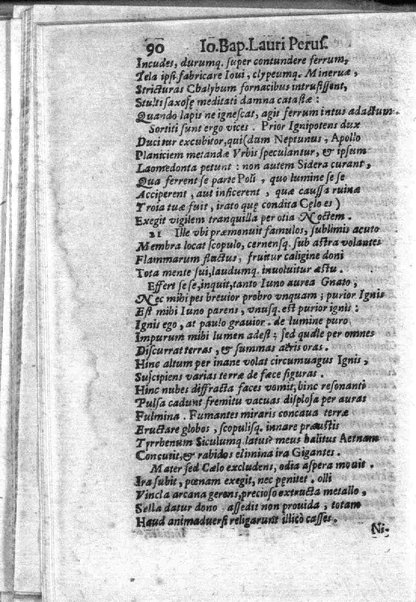 90 Io. Bap. Lauri Perus.
Incudes, durumq. super contundere ferrum,
Tela ipsi fabricare Ioui, clypeumq. Mineruæ,
Stricturas Chalybum fornacibus intrusissent,
Stulti saxosæ meditati damna catastæ:
Quando lapis ne ignescat, agit ferrum intus adactum.
Sortiti sunt ergo vices. Prior Ignipotens dux
Ducitur excubitor, qui dum Neptunus, Apollo
Planiciem metandæ Vrbis speculantur, & ipsum
Laomedonta petunt: non autem Sidera curant,
Qua ferrent se parte Poli, quo lumine se se
Acciperent, aut inficerent, quæ caussa ruinæ
Troia tuæ fuit, irato quę condita Cęlo es)
Exegit vigilem tranquilla per otia Noctem.
21 Ille vbi præmonuit famulos, sublimis acuto
Membra locat scopulo, cernensq. sub astra volantes
Flammarum fluctus, fruitur caligine doni
Tota mente sui, laudumq. inuoluitur æstu.
Effert se se, inquit, tanto Iuno aurea Gnato,
Nec mihi pes breuior probro vnquam; purior Ignis
Est mihi Iuno parens, vnusq. est purior ignis:
Ignis ego, at paulo grauior. de lumine puro
Impurum mihi lumen adest; sed quale per omnes
Discurrat terras, & summas aeris oras.
Hinc altum per inane volat circumuagus Ignis,
Suscipiens varias terræ de fæce figuras.
Hinc nubes diffracta faces vomit, hinc resonanti
Pulsa cadunt fremitu vacuas displosa per auras
Fulmina. Fumantes miraris concaua terræ
Eructare globos, scopulisq. innare præustis
Tyrrhenum Siculumq. latus? meus halitus Aetnam
Concutit, & rabidos elimina ira Gigantes.
Mater sed Cælo excludens, odia aspera mouit.
Ira subit, pœnam exegit, nec pęnitet. olli
Vincla arcana gerens, precioso extructa metallo,
Sella datur dono. assedit non prouida, totam
Haud animaduersi religarunt illicò casses.
Ni-